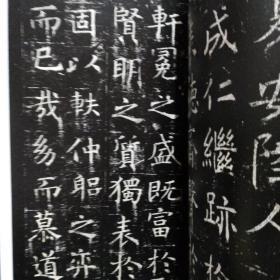 安陰人
成仁繼跡於
軒冕之盛既富於
賢明之質獨表於
固以軼仲躳之弈
而已哉幼而慕道